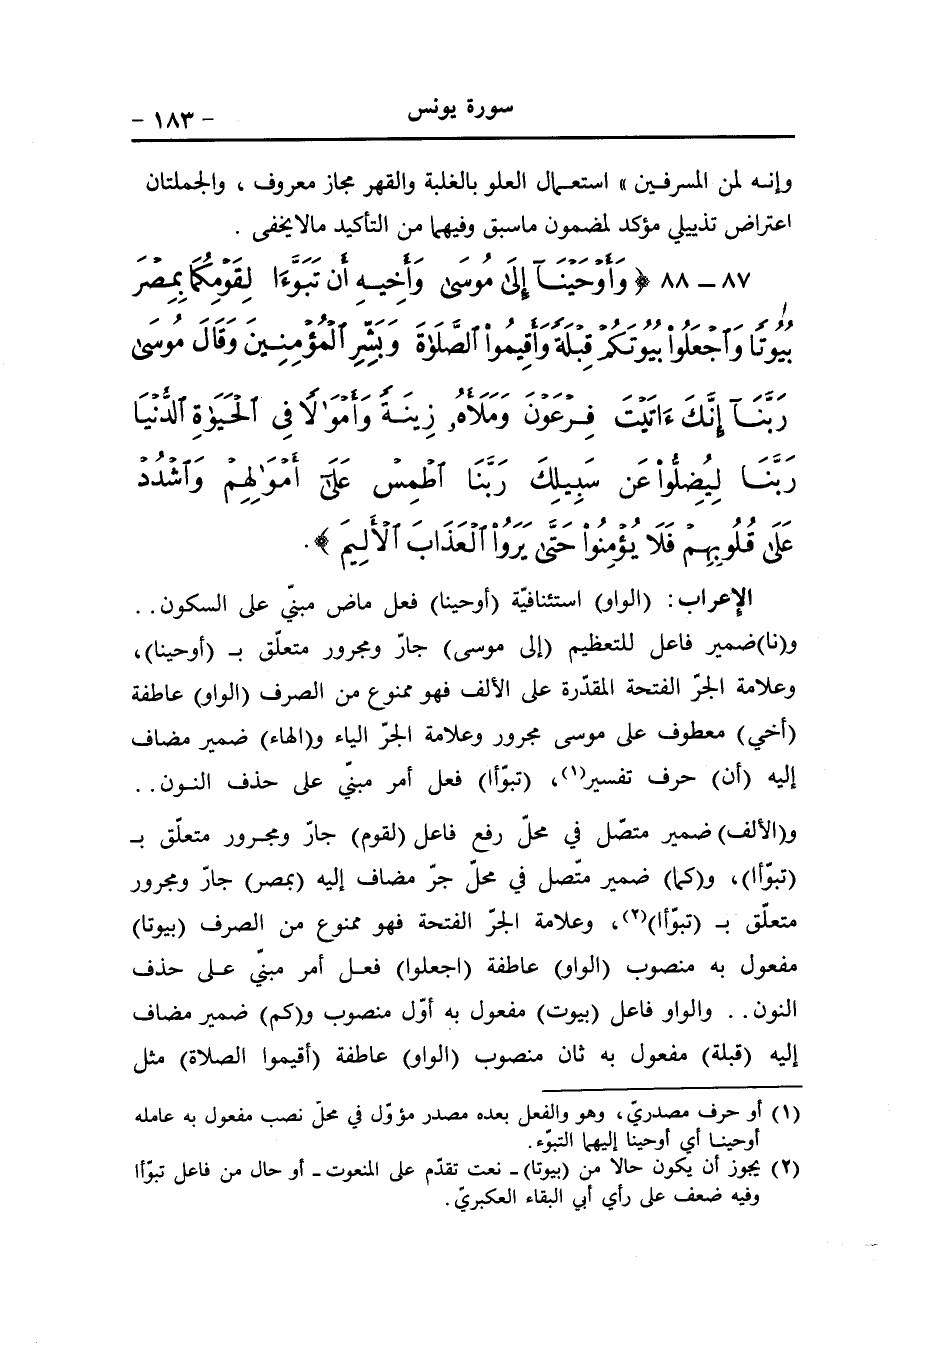 سورة يونس
- ١٨٣ -
وإنه لمن المسرفين » استعمال العلو بالغلبة والقهر مجاز معروف ، والجملتان
اعتراض تذييلي مؤكد لمضمون ماسبق وفيهما من التأكيد مالايخفى .
٨٧ – ٨٨ ﴿ وَأَوْحَيْنَآ إِلَىٰ مُوسَىٰ وَأَخِيهِ أَن تَبَوَّءَا لِقَوْمِكُمَا بِمِصْرَ
بُيُوتًا وَٱجْعَلُوا۟ بُيُوتَكُمْ قِبْلَةً وَأَقِيمُوا۟ ٱلصَّلَوٰةَ وَبَشِّرِ ٱلْمُؤْمِنِينَ وَقَالَ مُوسَىٰ
رَبَّنَآ إِنَّكَ ءَاتَيْتَ فِرْعَوْنَ وَمَلَأَهُۥ زِينَةً وَأَمْوَٰلًا فِى ٱلْحَيَوٰةِ ٱلدُّنْيَا
رَبَّنَا لِيُضِلُّوا۟ عَن سَبِيلِكَ رَبَّنَا ٱطْمِسْ عَلَىٰٓ أَمْوَٰلِهِمْ وَٱشْدُدْ
عَلَىٰ قُلُوبِهِمْ فَلَا يُؤْمِنُوا۟ حَتَّىٰ يَرَوُا۟ ٱلْعَذَابَ ٱلْأَلِيمَ ﴾.
الإعراب: (الواو) استئنافيّة (أوحينا) فعل ماض مبنيّ على السكون..
و(نا)ضمير فاعل للتعظيم (إلى موسى) جارّ ومجرور متعلّق بـ (أوحينا)،
وعلامة الجرّ الفتحة المقدّرة على الألف فهو ممنوع من الصرف (الواو) عاطفة
(أخي) معطوف على موسى مجرور وعلامة الجرّ الياء و(الهاء) ضمير مضاف
إليه (أن) حرف تفسير(١)، (تبوّأا) فعل أمر مبنيّ على حذف النون..
و(الألف) ضمير متصّل في محلّ رفع فاعل (لقوم) جارّ ومجرور متعلّق بـ
(تبوّأا)، و(كما) ضمير متّصل في محلّ جرّ مضاف إليه (بمصر) جارّ ومجرور
متعلّق بـ (تبوّأا)(٢)، وعلامة الجرّ الفتحة فهو ممنوع من الصرف (بيوتا)
مفعول به منصوب (الواو) عاطفة (اجعلوا) فعل أمر مبنيّ على حذف
النون.. والواو فاعل (بيوت) مفعول به أوّل منصوب و(كم) ضمير مضاف
إليه (قبلة) مفعول به ثان منصوب (الواو) عاطفة (أقيموا الصلاة) مثل
(١) أو حرف مصدريّ، وهو والفعل بعده مصدر مؤوّل في محلّ نصب مفعول به عامله
أوحينا أي أوحينا إليهما التبوّء.
(٢) يجوز أن يكون حالا من (بيوتا)- نعت تقدّم على المنعوت- أو حال من فاعل تبوّأا
وفيه ضعف على رأي أبي البقاء العكبريّ.